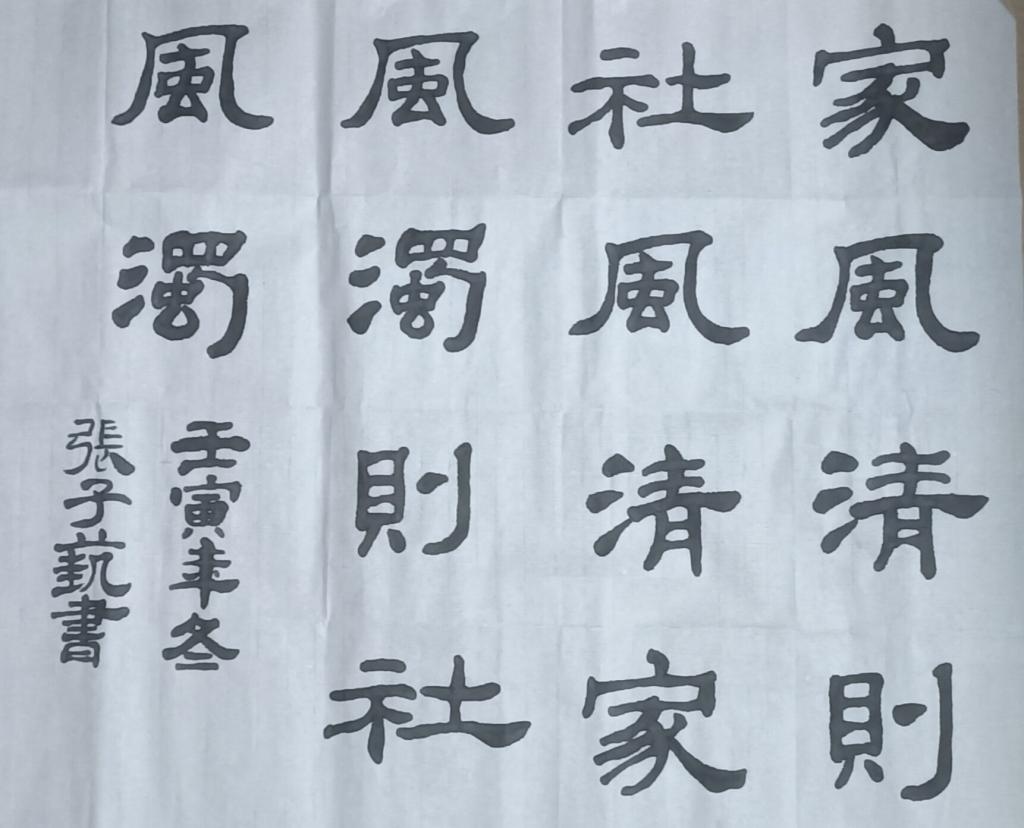 家風清則
社風清家
風濁則社
風濁
壬寅年冬
張子蓺書